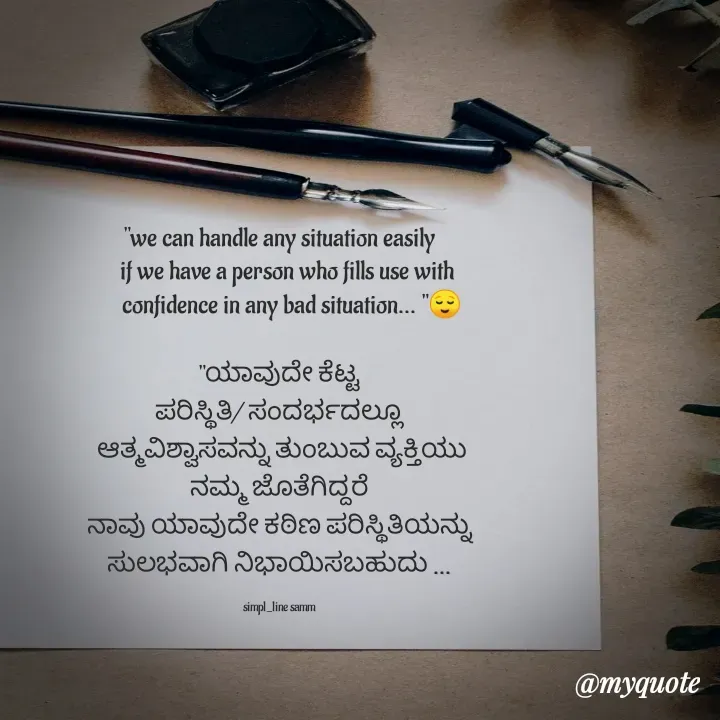 "we can handle any situation easily
if we have a person who fills use with
confidence in any bad situation... "😌
"ಯಾವುದೇ ಕೆಟ್ಟ
ಪರಿಸ್ಥಿತಿ/ ಸಂದರ್ಭದಲ್ಲೂ
ಆತ್ಮವಿಶ್ವಾಸವನ್ನು ತುಂಬುವ ವ್ಯಕ್ತಿಯು
ನಮ್ಮ ಜೊತೆಗಿದ್ದರೆ
ನಾವು ಯಾವುದೇ ಕಠಿಣ ಪರಿಸ್ಥಿತಿಯನ್ನು
ಸುಲಭವಾಗಿ ನಿಭಾಯಿಸಬಹುದು ...
simpl_line samm
@myquote